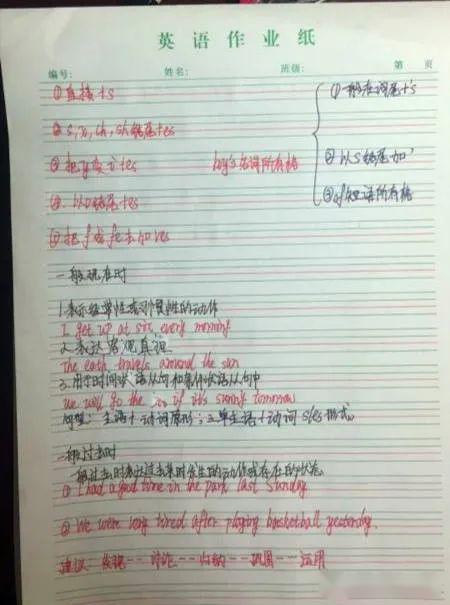 英语作业纸
编号: 姓名: 班级: 第 页
①直接+s
①一般在词尾+'s
②s,x,ch,sh结尾+es
③把y变i+es
boy's名词所有格
②以s结尾加'
③of短语所有格
④以o结尾+es
⑤把f或fe去加ves
一般现在时
1.表示经常性或习惯性的动作
I get up at six every morning
2.表达客观真理
The earth travels around the sun
3.用于时间状语从句和条件状语从句中
We will go to the zoo if it's sunny tomorrow
句型: 主语+动词原形;三单主语+动词s/es形式.
一般过去时
一般过去时表达过去某时发生的动作或存在的状态
① I had a good time in the park last Sunday
② We were very tired after playing basketball yesterday.
建议: 发现--讨论--归纳--巩固--运用